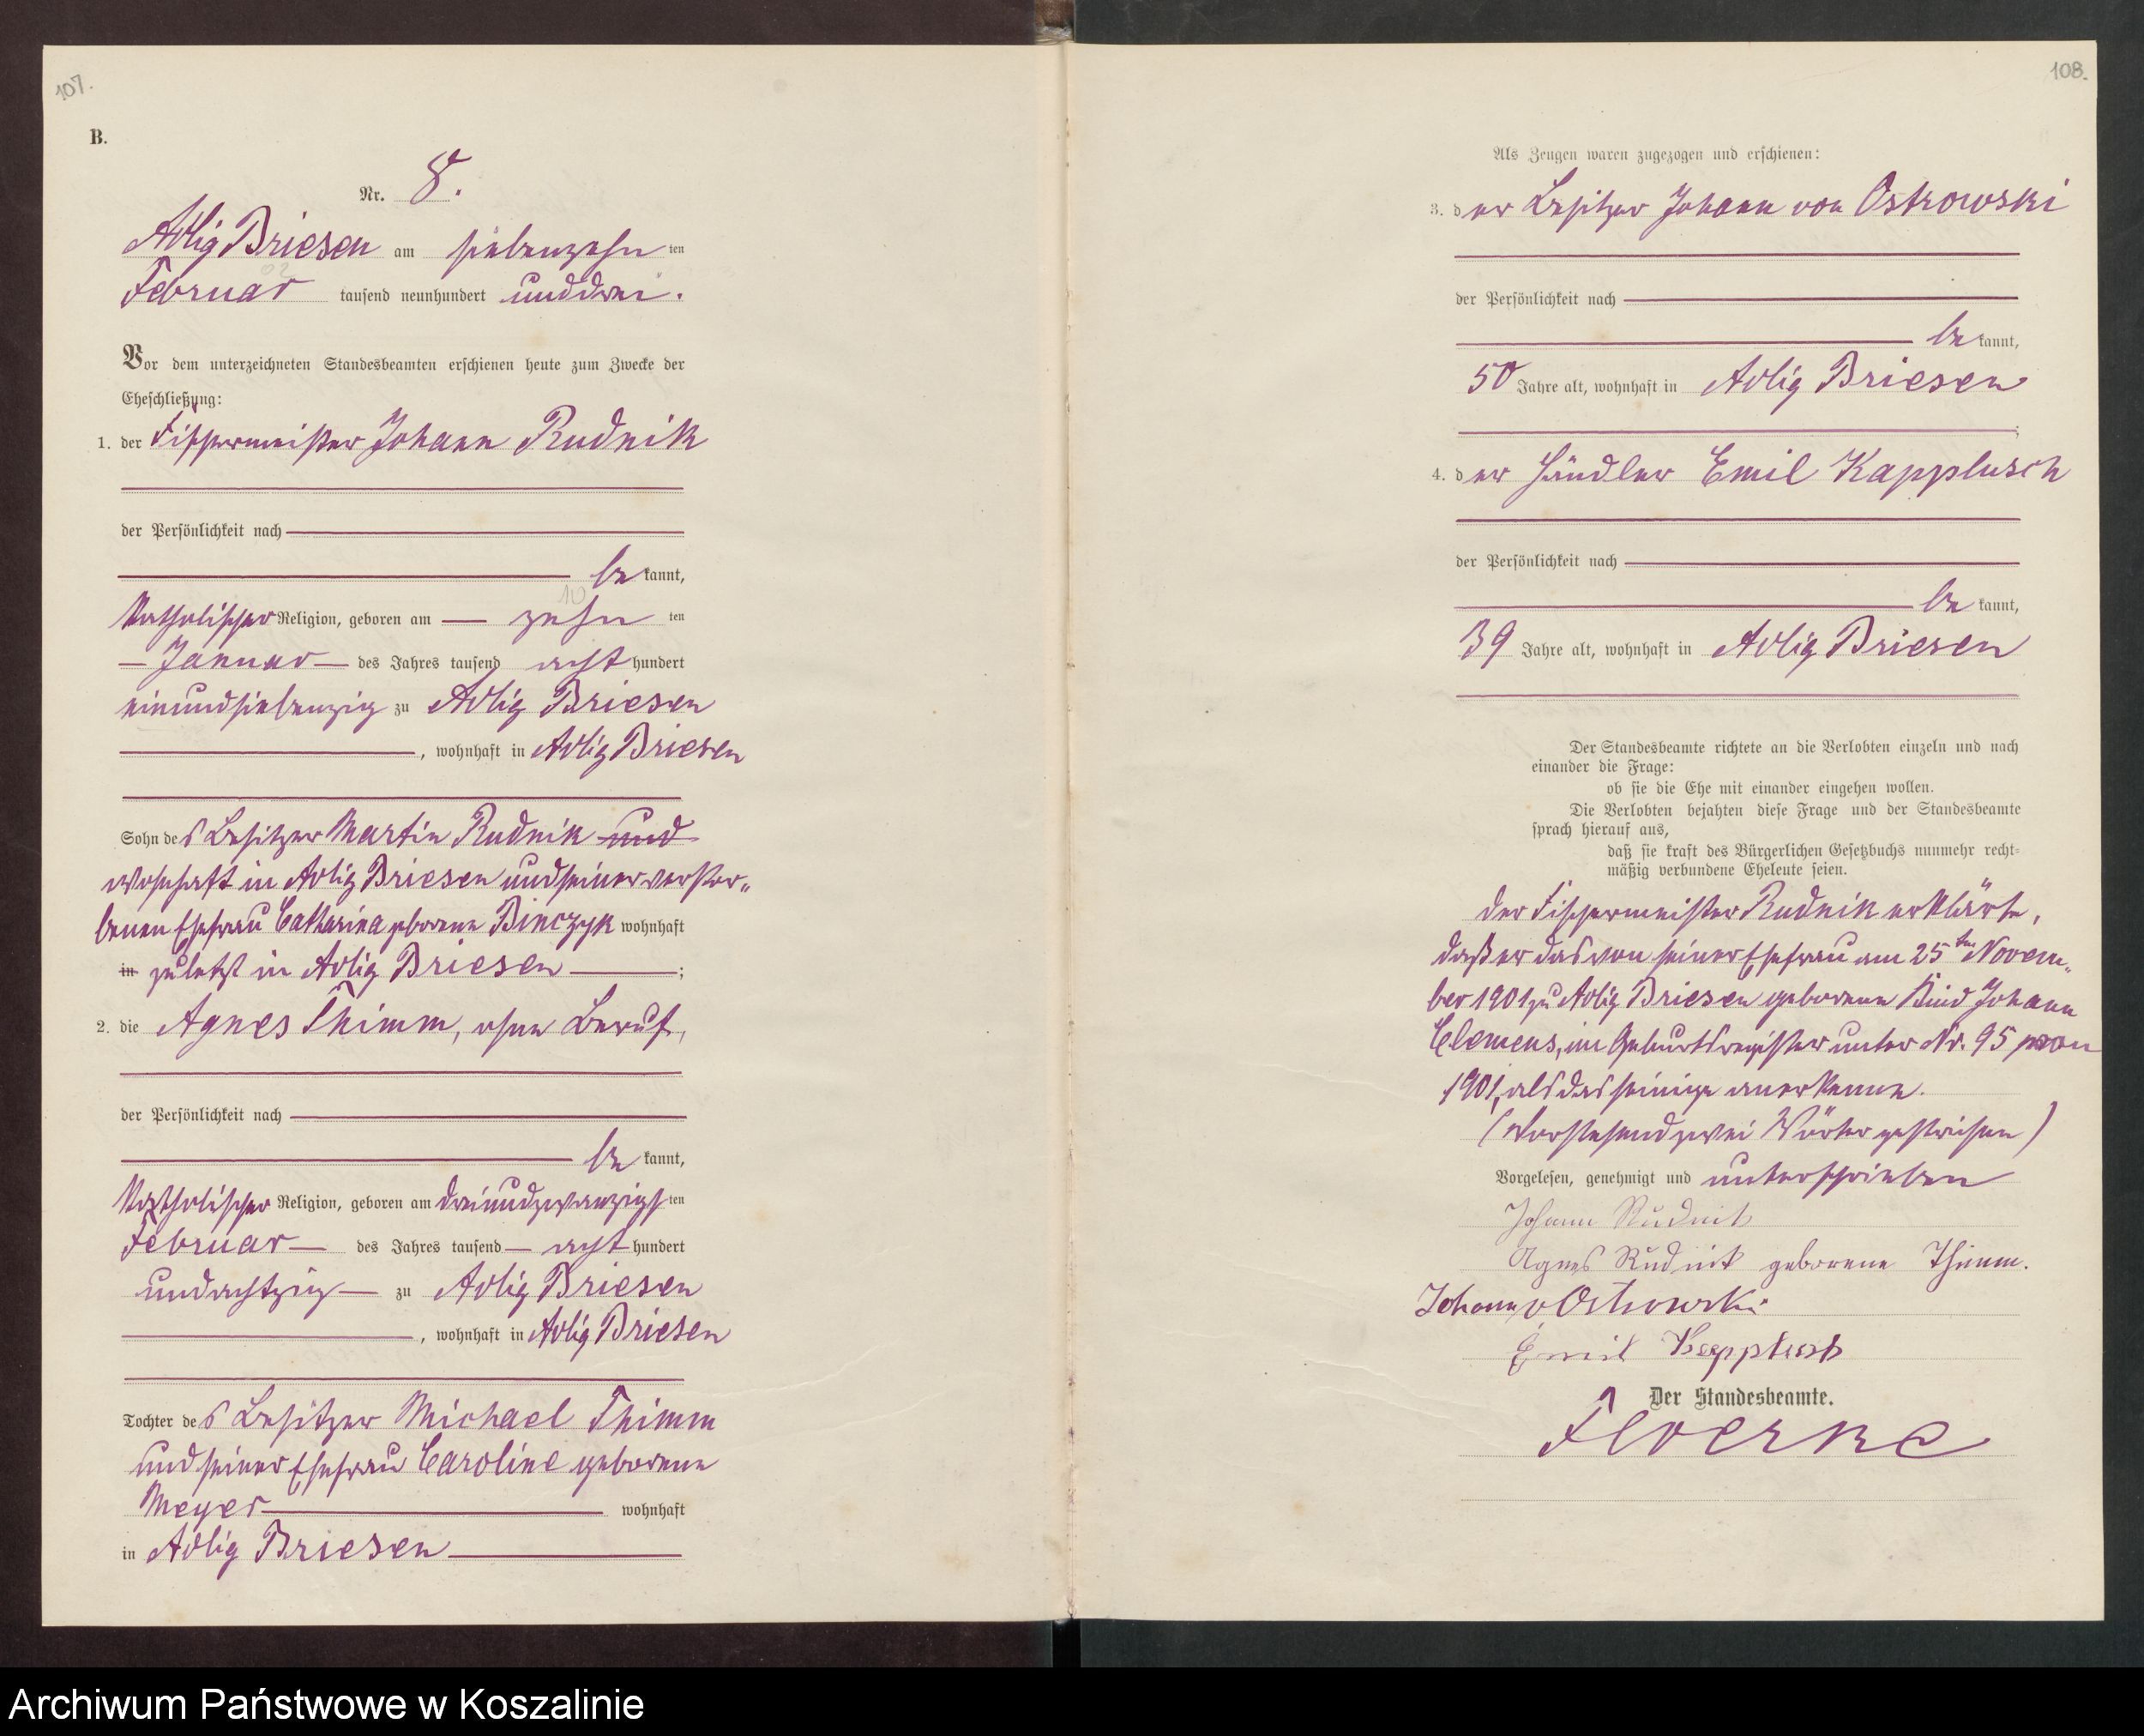 107.
B.
Nr. 8.
Adlig Briesen am siebenzehnten
Februar tausend neunhundert und drei.
Vor dem unterzeichneten Standesbeamten erschienen heute zum Zwecke der
Eheschließung:
1. der Fischermeister Johann Rudnik
der Persönlichkeit nach
bekannt,
katholischer Religion, geboren am — zehn ten
10
— Januar — des Jahres tausend acht hundert
einundsiebenzig zu Adlig Briesen
, wohnhaft in Adlig Briesen
Sohn des Besitzer Martin Rudnik und
wohnhaft in Adlig Briesen und seiner verstor-
benen Ehefrau Catharina geborene Binczyk wohnhaft
in zuletzt in Adlig Briesen — ;
2. die Agnes Thimm, ohne Beruf,
der Persönlichkeit nach
bekannt,
katholischer Religion, geboren am dreiundzwanzigsten
Februar — des Jahres tausend — acht hundert
undachtzig — zu Adlig Briesen
, wohnhaft in Adlig Briesen
Tochter des Besitzer Michael Thimm
und seiner Ehefrau Caroline geborene
Meyer — wohnhaft
in Adlig Briesen —
108.
Als Zeugen waren zugezogen und erschienen:
3. der Besitzer Johann von Ostrowski
der Persönlichkeit nach
bekannt,
50 Jahre alt, wohnhaft in Adlig Briesen
;
4. der Händler Emil Kapplusch
der Persönlichkeit nach
bekannt,
39 Jahre alt, wohnhaft in Adlig Briesen
Der Standesbeamte richtete an die Verlobten einzeln und nach
einander die Frage:
ob sie die Ehe mit einander eingehen wollen.
Die Verlobten bejahten diese Frage und der Standesbeamte
sprach hierauf aus,
daß sie kraft des Bürgerlichen Gesetzbuchs nunmehr recht-
mäßig verbundene Eheleute seien.
Der Fischermeister Rudnik erklärte,
daß er das von seiner Ehefrau am 25ten Novem-
ber 1901 zu Adlig Briesen geborene Kind Johann
Clemens, im Geburtsregister unter Nr. 95 pro
1901, als das seinige anerkenne.
(Vorstehend zwei Wörter gestrichen)
Vorgelesen, genehmigt und unterschrieben
Johann Rudnik
Agnes Rudnik geborene Thimm.
Johann v. Ostrowski
Emil Kapplusch
Der Standesbeamte.
Floerke
Archiwum Państwowe w Koszalinie